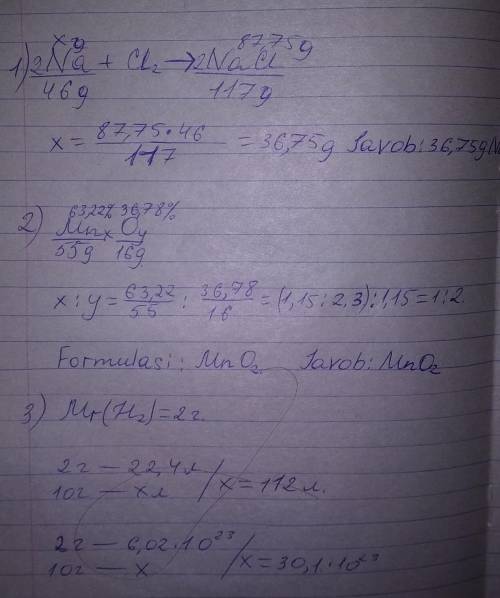 x g 87,75 g
1) 2Na + Cl₂ → 2NaCl
46 g 117 g
x = 87,75 · 46 / 117 = 36,75 g Javob: 36,75 g
63,22% 36,78%
2) Mnx Oy
55g 16g
x : y = 63,22 / 55 : 36,78 / 16 = (1,15 : 2,3) : 1,15 = 1 : 2.
Formulasi: MnO₂ Javob: MnO₂
3) Mr(H₂) = 2г.
2г — 22,4л
10г — x л / x = 112 л.
2г — 6,02 · 10²³
10г — x / x = 30,1 · 10²³